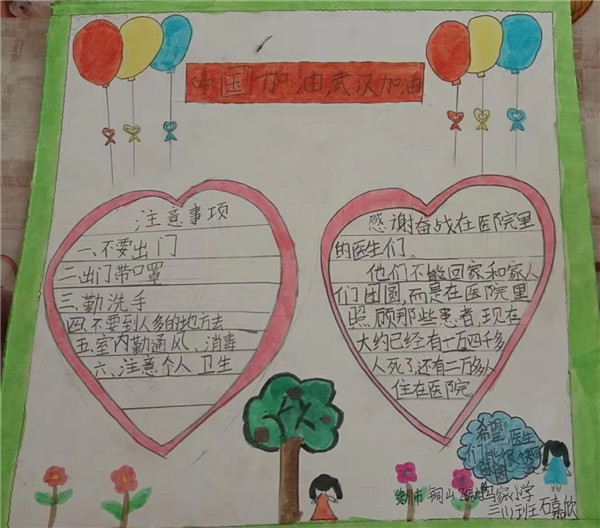 中国加油武汉加油
注意事项
一、不要出门
二出门带口罩
三.勤洗手
四.不要到人多的地方去
五.室内勤通风、消毒
六、注意个人卫生
感谢奋战在医院里
的医生们。
他们不能回家和家人
们团圆,而是在医院里
照顾那些患者,现在
大约已经有一万四千多
人死了,还有二万多人
住在医院。
希望医生
们能
市铜山
小学
三(1)班石嘉欣